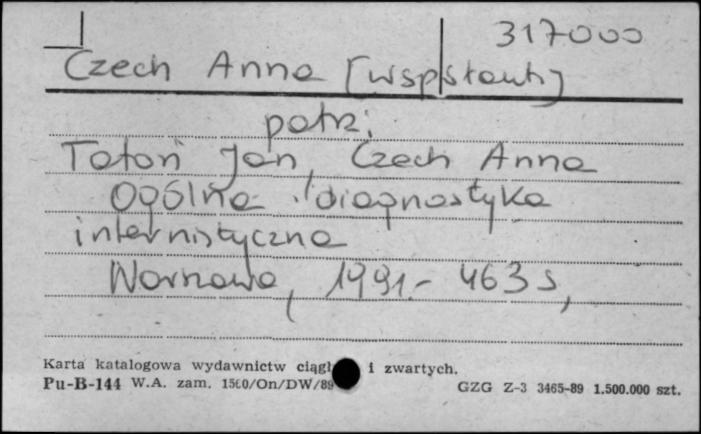 317000
Czech Anna [wspłaut.]
patrz:
Tatoń Jan, Czech Anna
Ogólna diagnostyka
internistyczna
Warszawa, 1991.- 463 s,
Karta katalogowa wydawnictw ciągł i zwartych.
Pu-B-144 W.A. zam. 1560/On/DW/89 GZG Z-3 3465-89 1.500.000 szt.